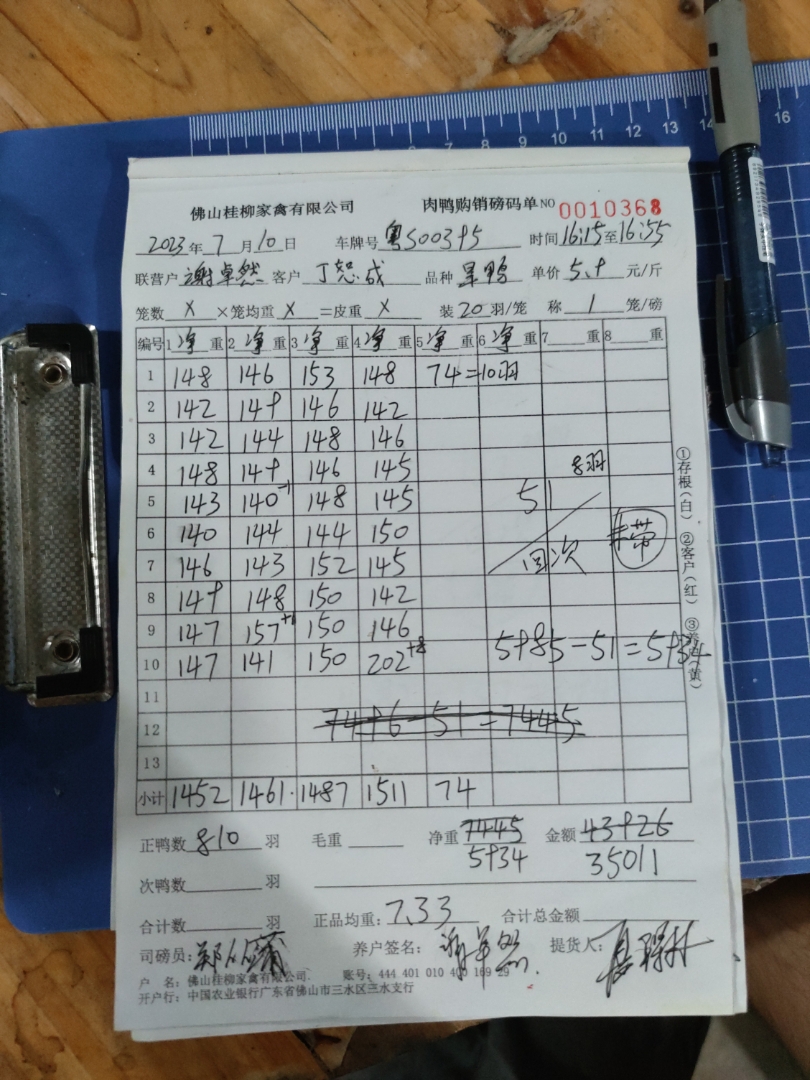 佛山桂柳家禽有限公司 肉鸭购销磅码单 NO 0010368
2023年7月10日 车牌号 粤S00395 时间 16:15至16:55
联营户 谢卓然 客户 丁恕成 品种 旱鸭 单价 5.9 元/斤
笼数 X ×笼均重 X =皮重 X 装 20 羽/笼 称 1 笼/磅
编号 1净重 2净重 3净重 4净重 5净重 6净重 7 重 8 重
1 148 146 153 148 74=10羽
2 142 149 146 142
3 142 144 148 146
4 148 149 146 145 8羽
5 143 140-1 148 145 51
6 140 144 144 150
7 146 143 152 145 回次
8 149 148 150 142
9 147 157+1 150 146
10 147 141 150 202+8 5985-51=5934
11
12 7496-51=7445
13
小计 1452 1461 1487 1511 74
①存根(白) ②客户(红) ③养户(黄)
正鸭数 810 羽 毛重 净重 7445 金额 43926
5934 35011
次鸭数 羽
合计数 羽 正品均重: 7.33 合计总金额
司磅员: 养户签名: 谢卓然 提货人:
户 名: 佛山桂柳家禽有限公司 账号: 444 401 010 400 169 29
开户行: 中国农业银行广东省佛山市三水区三水支行
5 6 7 8 9 10 11 12 13 14 15 16